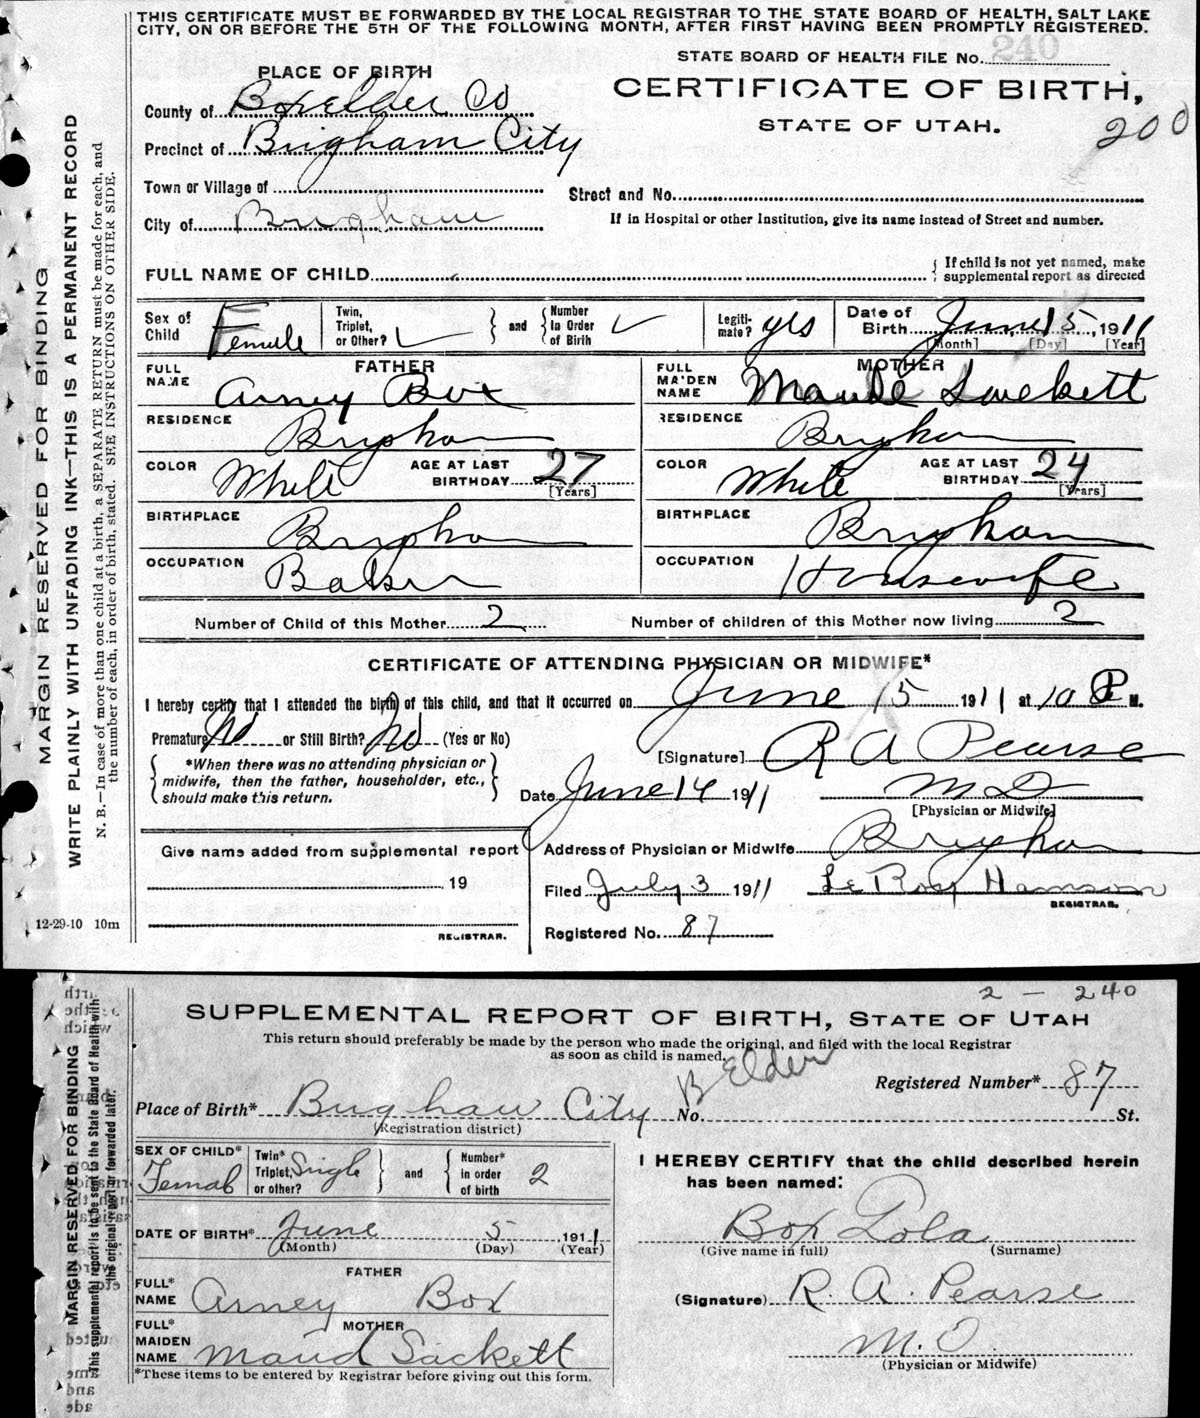 THIS CERTIFICATE MUST BE FORWARDED BY THE LOCAL REGISTRAR TO THE STATE BOARD OF HEALTH, SALT LAKE
CITY, ON OR BEFORE THE 5TH OF THE FOLLOWING MONTH, AFTER FIRST HAVING BEEN PROMPTLY REGISTERED.
STATE BOARD OF HEALTH FILE No. 240
PLACE OF BIRTH
CERTIFICATE OF BIRTH,
STATE OF UTAH.
200
County of Boxelder Co
Precinct of Brigham City
Town or Village of
Street and No.
City of Brigham
If in Hospital or other Institution, give its name instead of Street and number.
FULL NAME OF CHILD
{ If child is not yet named, make
supplemental report as directed
Sex of Child Female
Twin, Triplet, or Other?
and
Number In Order of Birth
Legiti-mate? yes
Date of Birth June 15, 1911
[Month] [Day] [Year]
FATHER
MOTHER
FULL NAME Arney Box
FULL MAIDEN NAME Maude Sackett
RESIDENCE Brigham
RESIDENCE Brigham
COLOR White AGE AT LAST BIRTHDAY 27 [Years]
COLOR White AGE AT LAST BIRTHDAY 24 [Years]
BIRTHPLACE Brigham
BIRTHPLACE Brigham
OCCUPATION Baker
OCCUPATION Housewife
Number of Child of this Mother 2
Number of children of this Mother now living 2
CERTIFICATE OF ATTENDING PHYSICIAN OR MIDWIFE*
I hereby certify that I attended the birth of this child, and that it occurred on June 15 1911 at 10 P M.
Premature No or Still Birth? No (Yes or No)
[Signature] R A Pearse
*When there was no attending physician or
midwife, then the father, householder, etc.,
should make this return.
Date June 14 1911
M D
[Physician or Midwife]
Give name added from supplemental report
Address of Physician or Midwife Brigham
19
Filed July 3 1911 Le Roy Hamson
REGISTRAR.
REGISTRAR.
Registered No. 87
12-29-10 10m
MARGIN RESERVED FOR BINDING
WRITE PLAINLY WITH UNFADING INK—THIS IS A PERMANENT RECORD
N. B.—In case of more than one child at a birth, a SEPARATE RETURN must be made for each, and
the number of each, in order of birth, stated. SEE INSTRUCTIONS ON OTHER SIDE.
2 - 240
SUPPLEMENTAL REPORT OF BIRTH, STATE OF UTAH
This return should preferably be made by the person who made the original, and filed with the local Registrar
as soon as child is named.
B Elder
Registered Number* 87
Place of Birth* Brigham City No. St.
(Registration district)
SEX OF CHILD* Female
Twin* Triplet, or other? Single
and
Number* in order of birth 2
I HEREBY CERTIFY that the child described herein
has been named:
DATE OF BIRTH* June 5 1911
(Month) (Day) (Year)
Box Lola
(Give name in full) (Surname)
FATHER
FULL* NAME Arney Box
(Signature) R. A. Pearse
MOTHER
FULL* MAIDEN NAME Maud Sackett
M. D.
(Physician or Midwife)
*These items to be entered by Registrar before giving out this form.
MARGIN RESERVED FOR BINDING
This supplemental report is to be sent to the State Board of Health with
the original report or forwarded later.